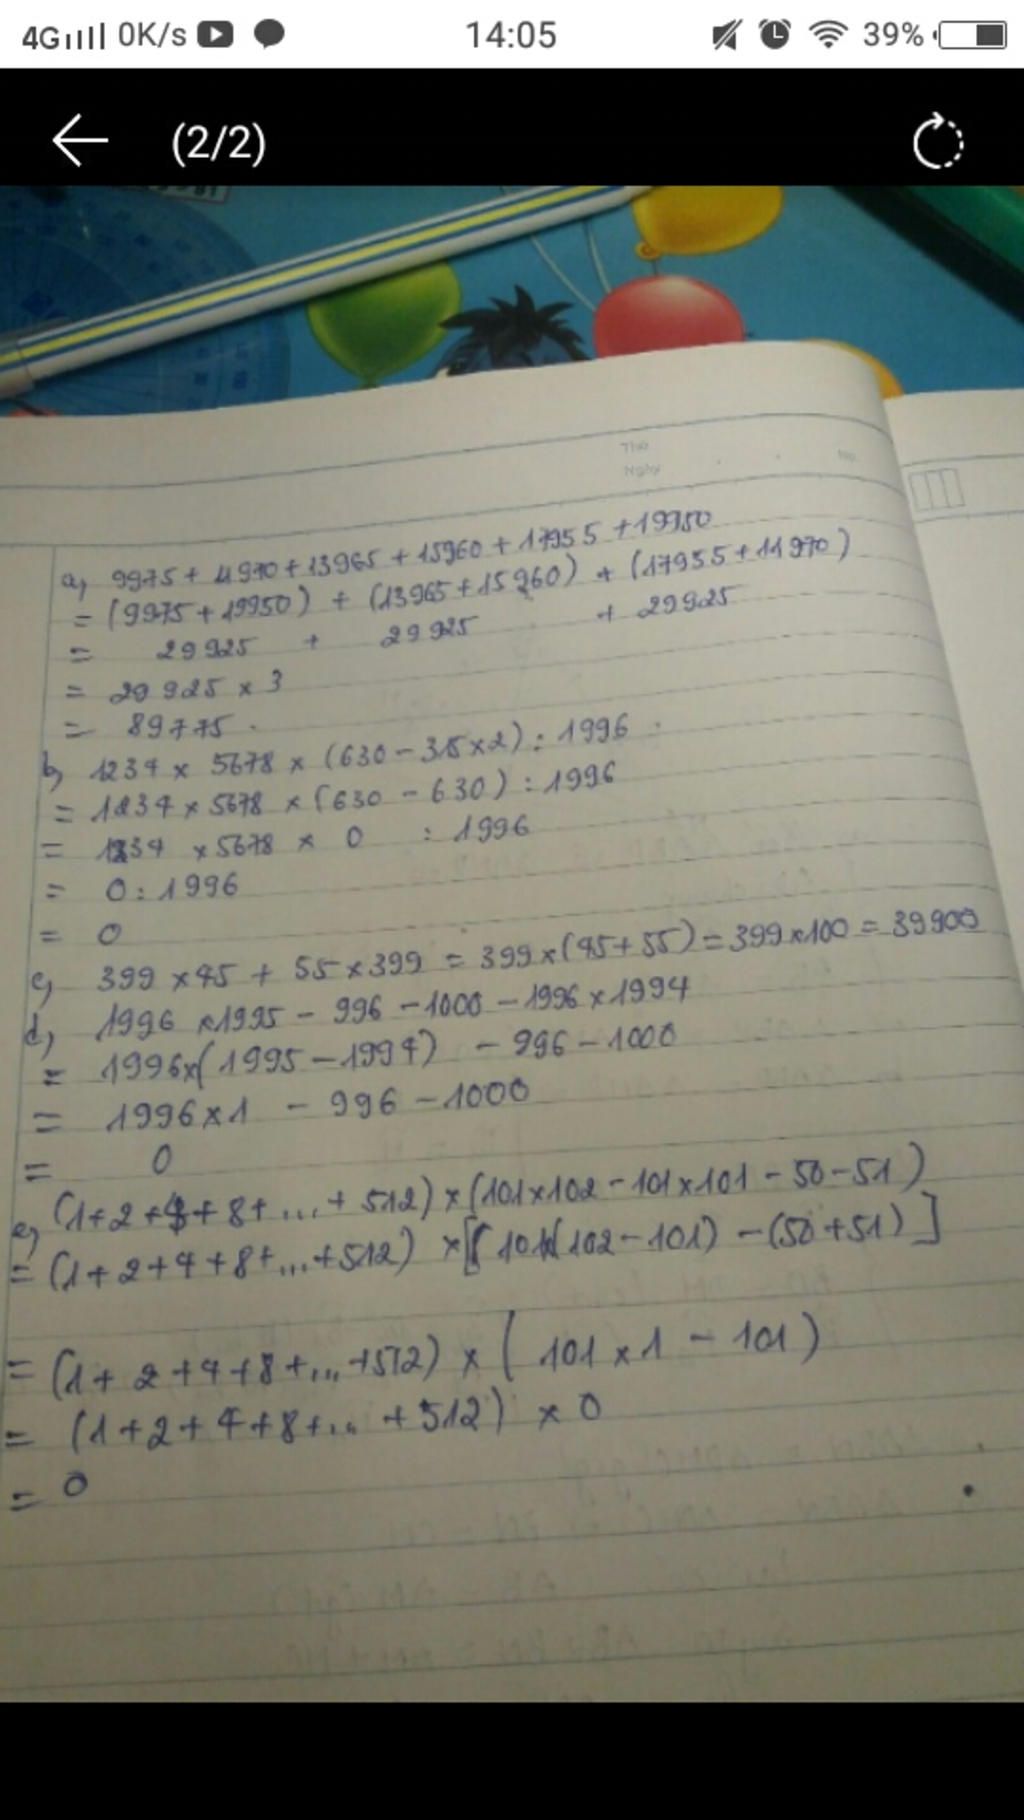 4G 0K/s 14:05 39%
(2/2)
Thứ
Ngày No.
a, 9975 + 11970 + 13965 + 15960 + 17955 + 19950
= (9975 + 19950) + (13965 + 15960) + (17955 + 11970)
= 29925 + 29925 + 29925
= 29925 × 3
= 89775.
b, 1234 × 5678 × (630 - 315×2) : 1996
= 1234 × 5678 × (630 - 630) : 1996
= 1234 × 5678 × 0 : 1996
= 0 : 1996
= 0
c, 399 × 45 + 55 × 399 = 399 × (45 + 55) = 399 × 100 = 39900
d, 1996 × 1995 - 996 - 1000 - 1996 × 1994
= 1996 × (1995 - 1994) - 996 - 1000
= 1996 × 1 - 996 - 1000
= 0
e, (1 + 2 + 4 + 8 + ... + 512) × (101×102 - 101×101 - 50 - 51)
= (1 + 2 + 4 + 8 + ... + 512) × [101×(102 - 101) - (50 + 51)]
= (1 + 2 + 4 + 8 + ... + 512) × (101 × 1 - 101)
= (1 + 2 + 4 + 8 + ... + 512) × 0
= 0